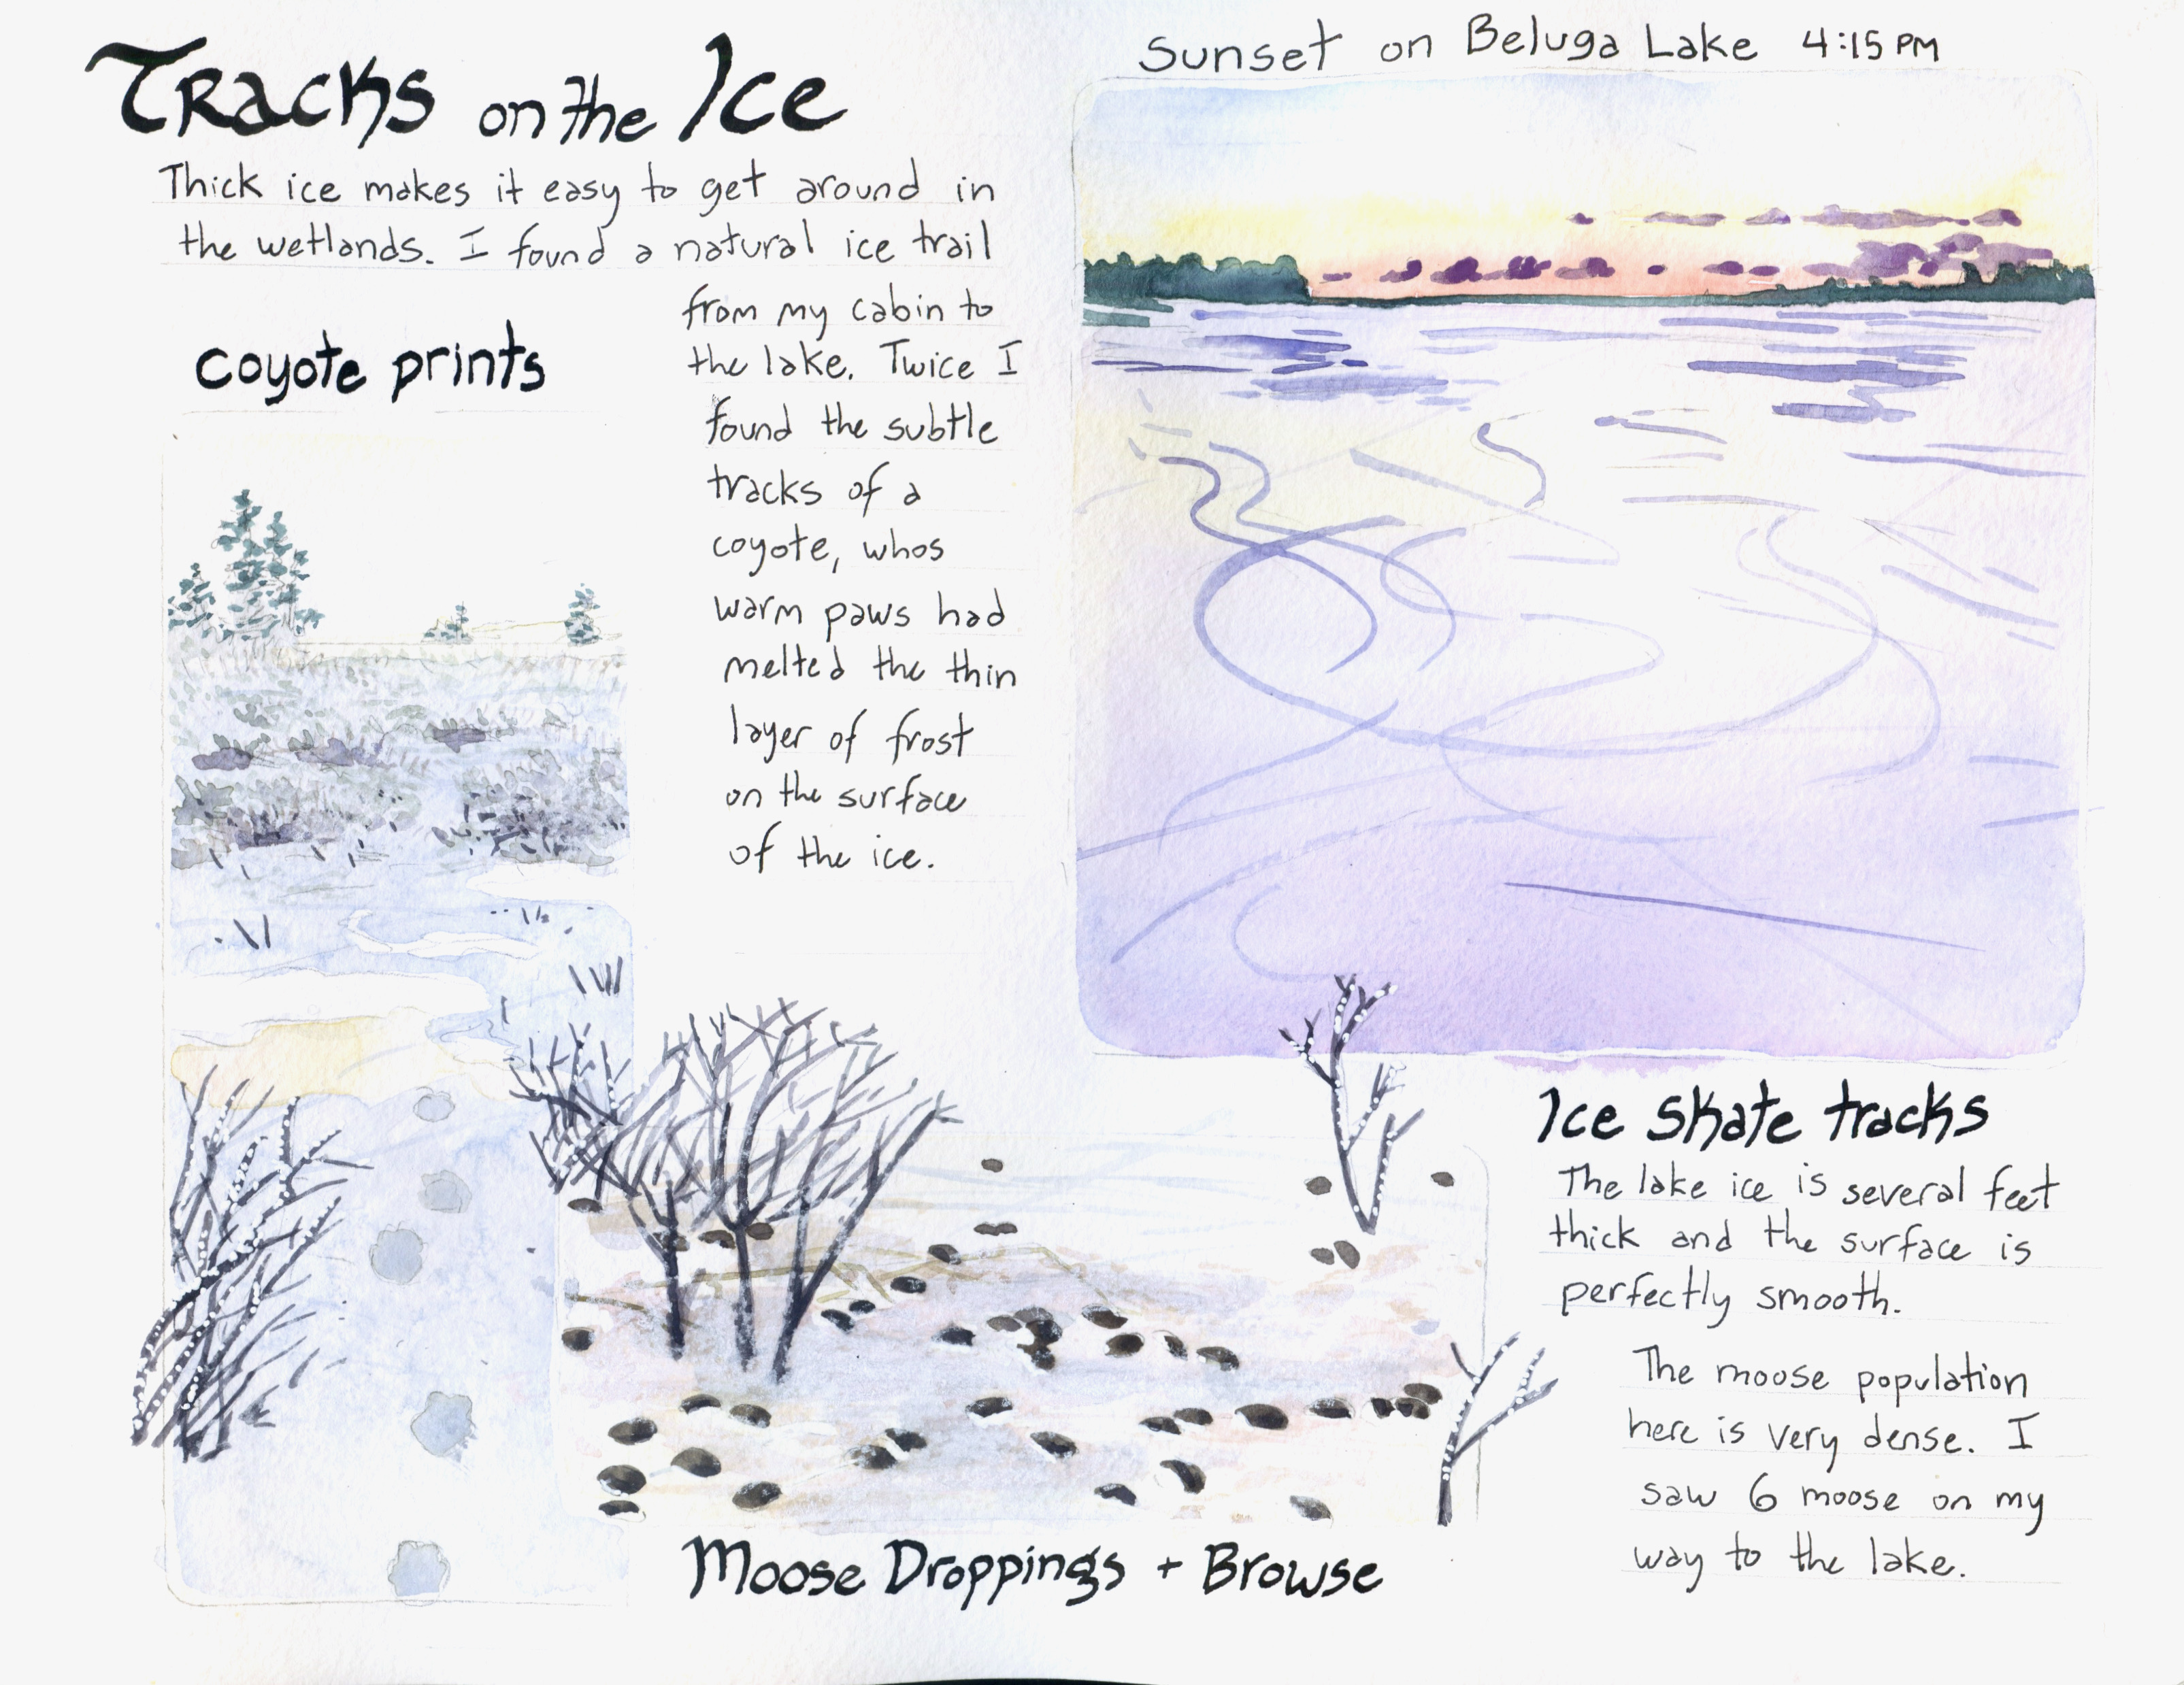 Tracks on the Ice
Thick ice makes it easy to get around in
the wetlands. I found a natural ice trail
from my cabin to
the lake. Twice I
found the subtle
tracks of a
coyote, whos
warm paws had
melted the thin
layer of frost
on the surface
of the ice.
coyote prints
Sunset on Beluga Lake 4:15 PM
Ice skate tracks
The lake ice is several feet
thick and the surface is
perfectly smooth.
The moose population
here is very dense. I
saw 6 moose on my
way to the lake.
Moose Droppings + Browse